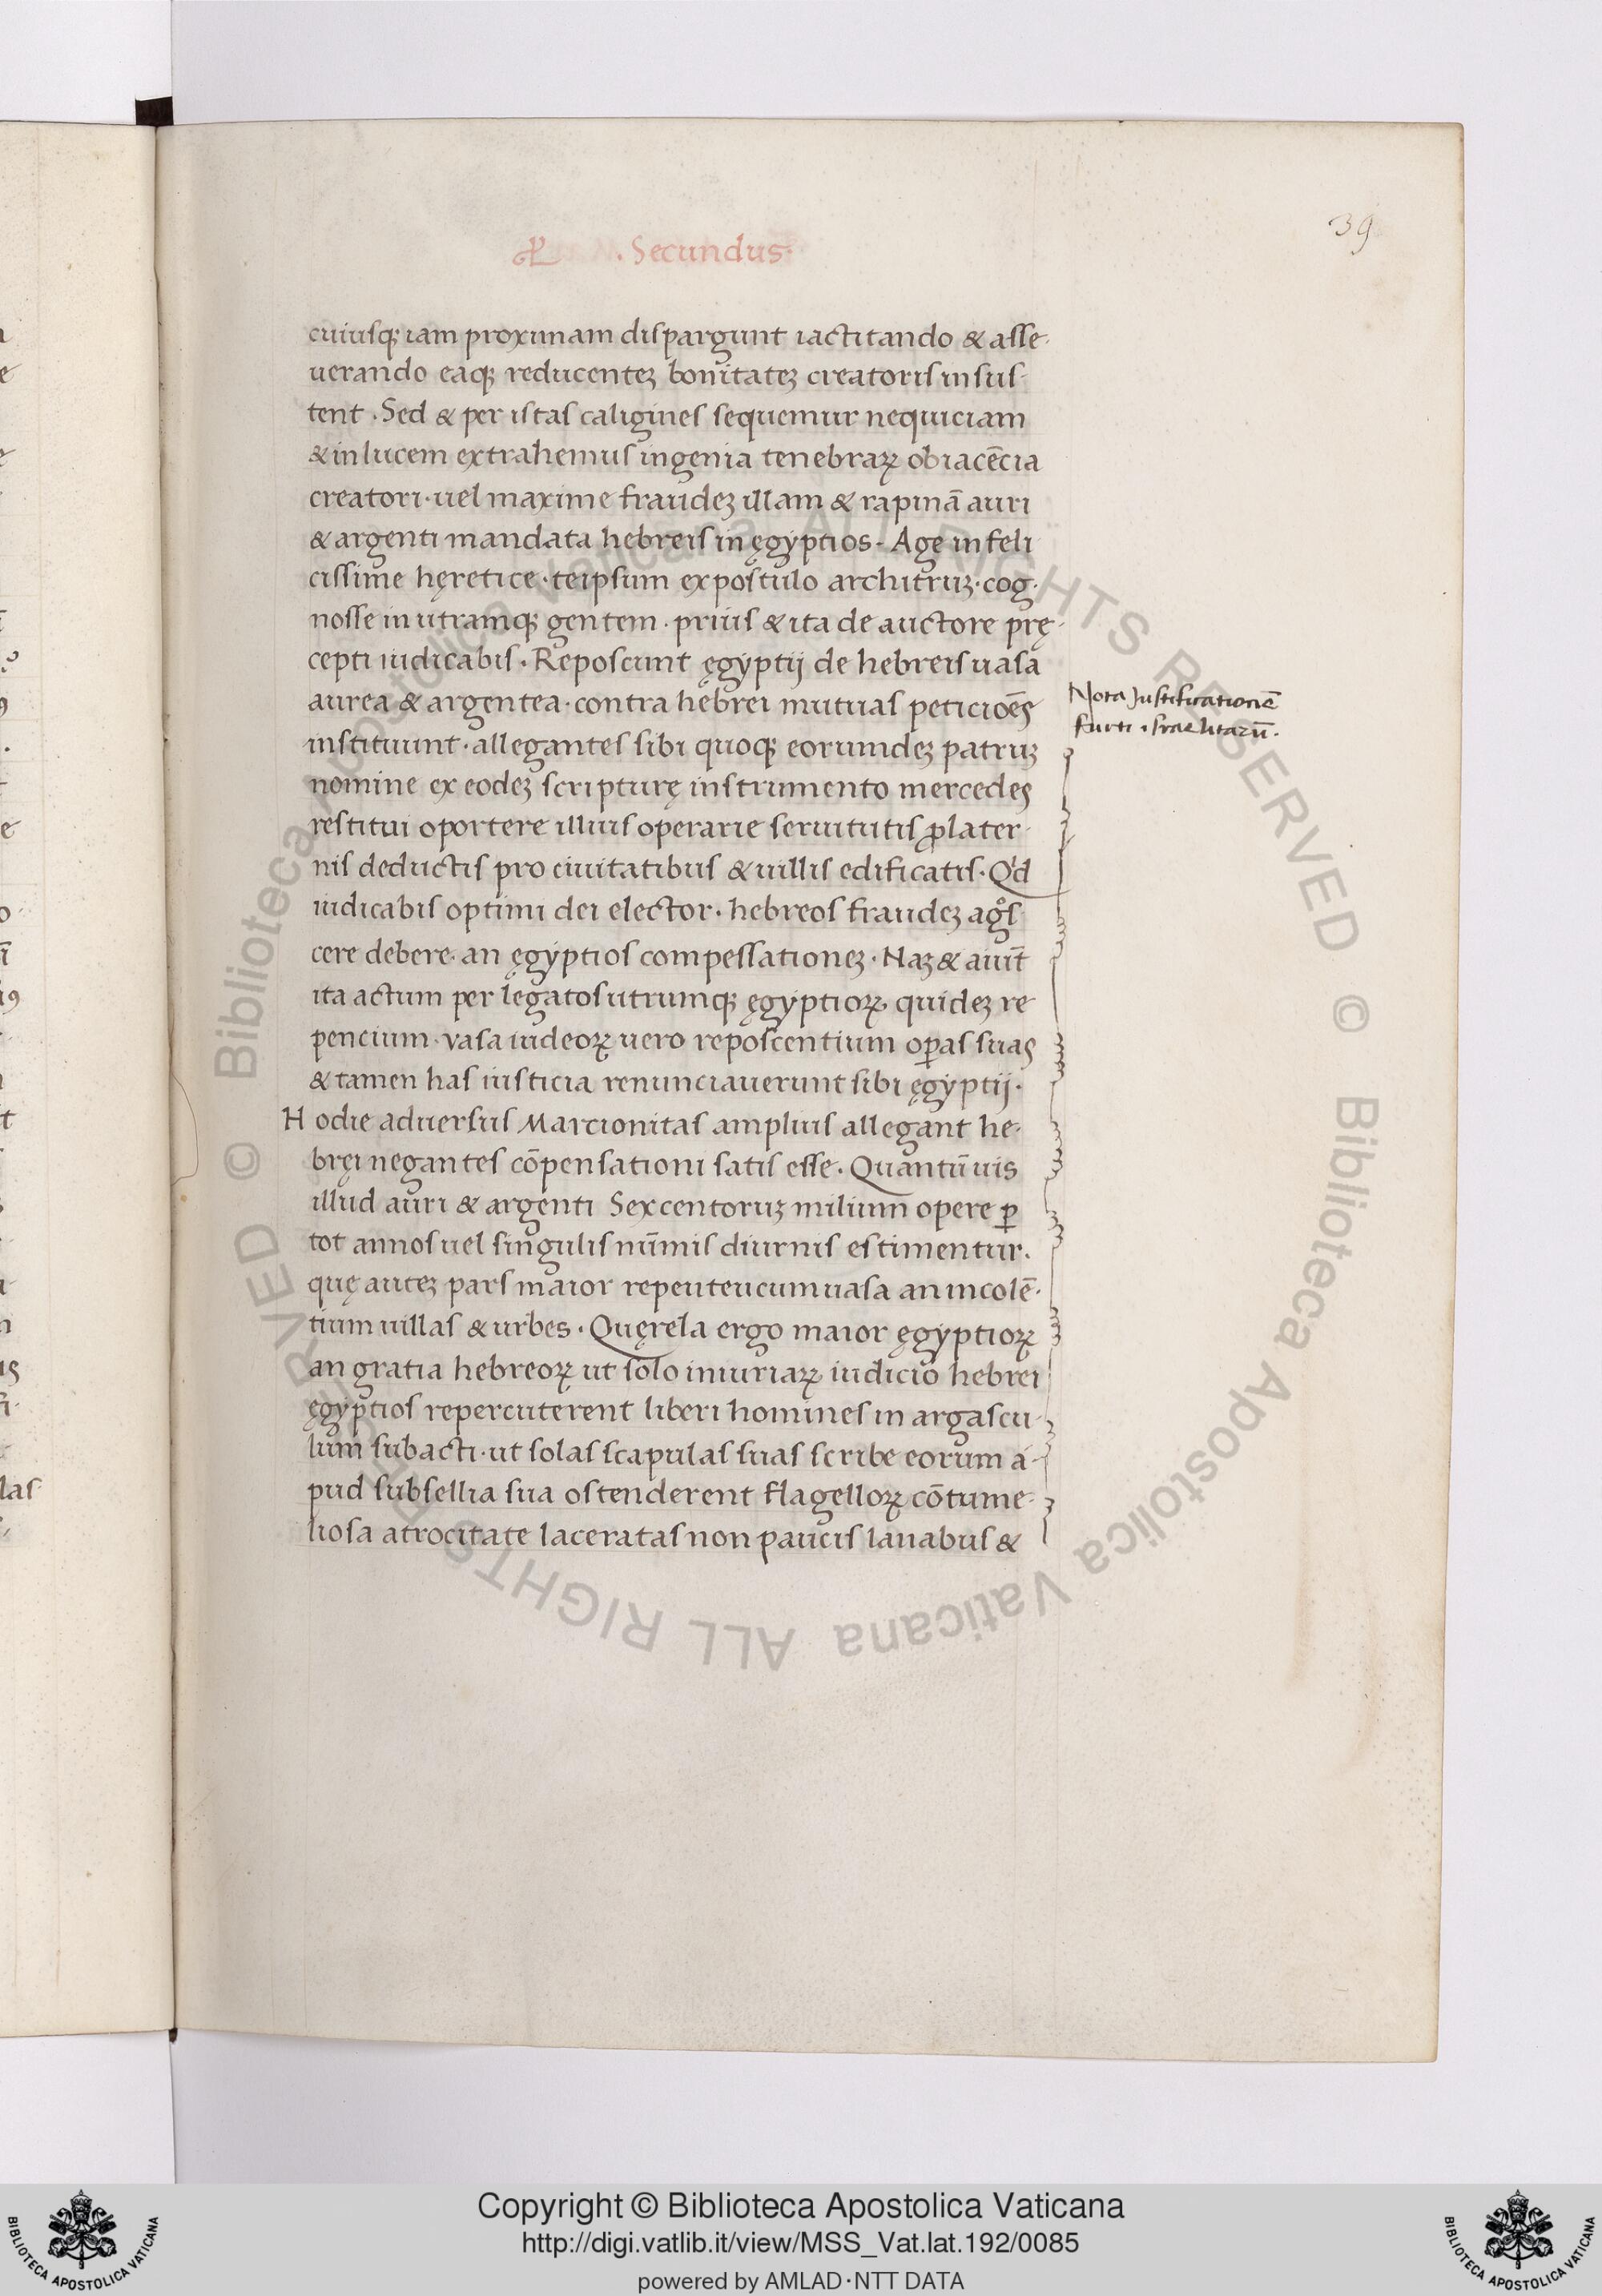 39
. Secundus.
cuiusq; iam proximam dispargunt iactitando & asse-
uerando eaq; reducenteʒ bonitateʒ creatoris insus-
tent. Sed & per istas caligines sequemur nequiciam
& in lucem extrahemus ingenia tenebraꝝ obiacẽcia
creatori. uel maxime fraudeʒ illam & rapinã auri
& argenti mandata hebreis in ęgyptios. Age infeli
cissime hęretice. teipsum expostulo architruʒ. cog-
nosse in utramq; gentem. prius & ita de auctore prę-
cepti iudicabis. Reposcunt ęgyptij de hebreis uasa
aurea & argentea. contra hebrei mutuas peticiões
instituunt. allegantes sibi quoq; eorumdeʒ patruʒ
nomine ex eodeʒ scripturę instrumento mercedes
restitui oportere illius operarie seruitutis ꝓ later-
nis deductis pro ciuitatibus & uillis edificatis. Qd
iudicabis optimi dei elector. hebreos fraudeʒ agos
cere debere. an ęgyptios compessationeʒ. Naʒ & aiũt
ita actum per legatos utrumq; ęgyptioꝝ quideʒ re-
pencium. vasa iudeoꝝ uero reposcentium oꝑas suas
& tamen has iusticia renunciauerunt sibi ęgyptij.
Hodie aduersus Marcionitas amplius allegant he-
bręi negantes cõpensationi satis esse. Quantũuis
illud auri & argenti Sexcentoruʒ milium opere ꝑ
tot annos uel singulis nũmis diurnis estimentur.
quę auteʒ pars maior repeuteucum uasa an incolẽ-
tium uillas & urbes. Quęrela ergo maior ęgyptioꝝ
an gratia hebreoꝝ ut solo iniuriaꝝ iudicio hebrei
ęgyptios repercuterent liberi homines in argascu-
lum subacti. ut solas scapulas suas scribe eorum a-
pud subsellia sua ostenderent flagelloꝝ cõtume-
liosa atrocitate laceratas non paucis lanabus &
Nota justificationẽ
furti israelitarũ.
© Biblioteca Apostolica Vaticana ALL RIGHTS RESERVED © Biblioteca Apostolica Vaticana ALL RIGHTS RESERVED
Copyright © Biblioteca Apostolica Vaticana
http://digi.vatlib.it/view/MSS_Vat.lat.192/0085
powered by AMLAD·NTT DATA
BIBLIOTECA APOSTOLICA VATICANA
BIBLIOTECA APOSTOLICA VATICANA